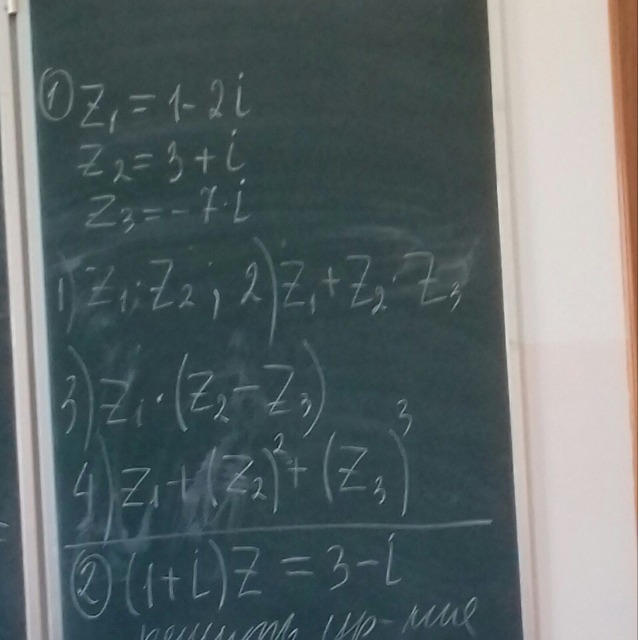 ① Z₁ = 1 - 2i
Z₂ = 3 + i
Z₃ = - 7·i
1) Z₁ : Z₂ ; 2) Z₁ + Z₂ · Z₃
3) Z₁ · (Z₂ - Z₃)
4) Z₁ + (Z₂)² + (Z₃)³
② (1+i)Z = 3-i
решить ур-ние